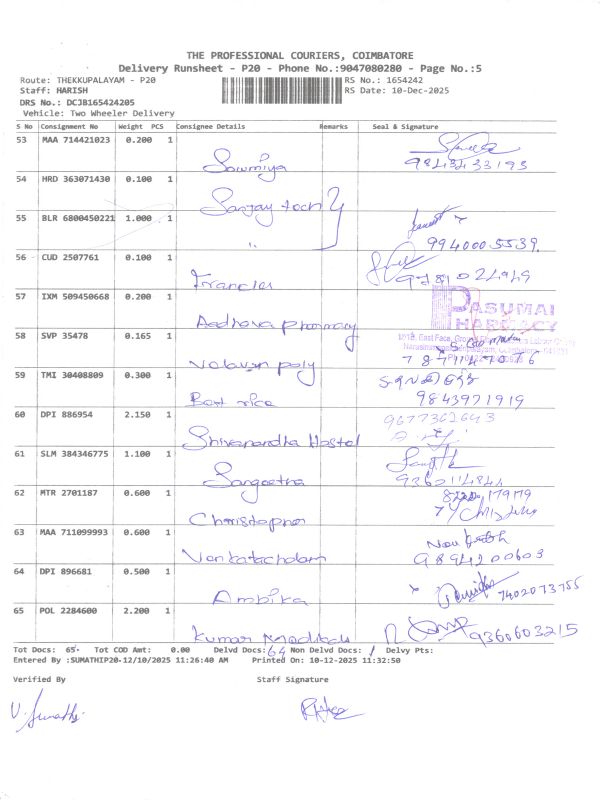 THE PROFESSIONAL COURIERS, COIMBATORE
Delivery Runsheet - P20 - Phone No.:9047080280 - Page No.:5
Route: THEKKUPALAYAM - P20 RS No.: 1654242
Staff: HARISH RS Date: 10-Dec-2025
DRS No.: DCJB165424205
Vehicle: Two Wheeler Delivery
S No Consignment No Weight PCS Consignee Details Remarks Seal & Signature
53 MAA 714421023 0.200 1
Sowmiya 9843433193
54 HRD 363071430 0.100 1
Sanjay tech
55 BLR 6800450221 1.000 1
9940005539.
56 CUD 2507761 0.100 1
Francies
57 IXM 509450668 0.200 1
PASUMAI
PHARMACY
Aadhava pharmacy
58 SVP 35478 0.165 1
Valavan poly
59 TMI 30408809 0.300 1
Best rice 9843971919
60 DPI 886954 2.150 1 9677362643
Shivanandha Hostel
61 SLM 384346775 1.100 1
Sangeetha 9360114844
62 MTR 2701187 0.600 1
Christopher
63 MAA 711099993 0.600 1
Venkatachalam 9894200603
64 DPI 896681 0.500 1
Ambika 7402073755
65 POL 2284600 2.200 1
Kumar 9360603215
Tot Docs: 65 Tot COD Amt: 0.00 Delvd Docs: 64 Non Delvd Docs: 1 Delvy Pts:
Entered By :SUMATHIP20-12/10/2025 11:26:40 AM Printed On: 10-12-2025 11:32:50
Verified By Staff Signature